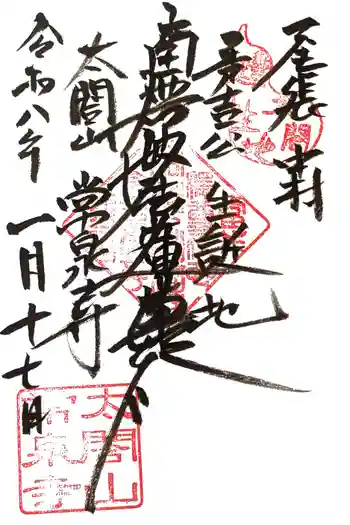 尾張中村
秀吉公 生誕地
南無妙法蓮華経
太閤山 常泉寺
令和八年
一月十七日
太閤山
常泉寺